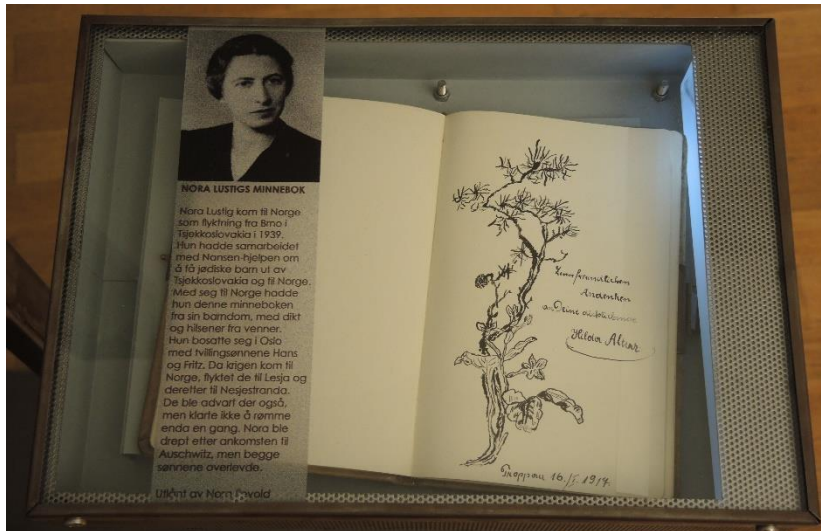 NORA LUSTIGS MINNEBOK
Nora Lustig kom til Norge
som flyktning fra Brno i
Tsjekkoslovakia i 1939.
Hun hadde samarbeidet
med Nansen-hjelpen om
å få jødiske barn ut av
Tsjekkoslovakia og til Norge.
Med seg til Norge hadde
hun denne minneboken
fra sin barndom, med dikt
og hilsener fra venner.
Hun bosatte seg i Oslo
med tvillingsønnene Hans
og Fritz. Da krigen kom til
Norge, flyktet de til Lesja og
deretter til Nesjestranda.
De ble advart der også,
men klarte ikke å rømme
enda en gang. Nora ble
drept etter ankomsten til
Auschwitz, men begge
sønnene overlevde.
Utlånt av Nora
Zum freundlichen
Andenken
an Deine
Hilda
Troppau 16./I. 1914.